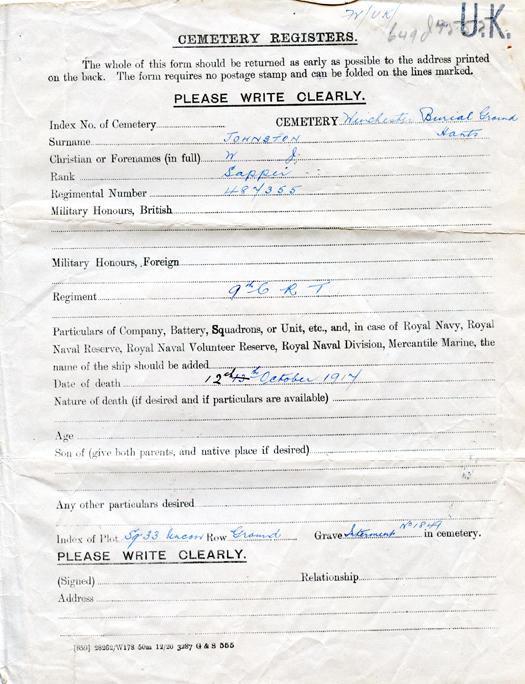 W/UK/
U.K.
CEMETERY REGISTERS.
The whole of this form should be returned as early as possible to the address printed
on the back. The form requires no postage stamp and can be folded on the lines marked.
PLEASE WRITE CLEARLY.
Index No. of Cemetery CEMETERY Winchester Burial Ground
Hants
Surname JOHNSTON
Christian or Forenames (in full) W J.
Rank Sapper
Regimental Number 487355
Military Honours, British
Military Honours, Foreign
Regiment 9th C R T
Particulars of Company, Battery, Squadrons, or Unit, etc., and, in case of Royal Navy, Royal
Naval Reserve, Royal Naval Volunteer Reserve, Royal Naval Division, Mercantile Marine, the
name of the ship should be added
Date of death 12th October 1917
Nature of death (if desired and if particulars are available)
Age
Son of (give both parents, and native place if desired)
Any other particulars desired
Index of Plot Sq 33 Uncon Row Ground Grave Interment No 1849 in cemetery.
PLEASE WRITE CLEARLY.
(Signed) Relationship
Address
[859] 28262/W178 50m 12/20 3287 G & S 555